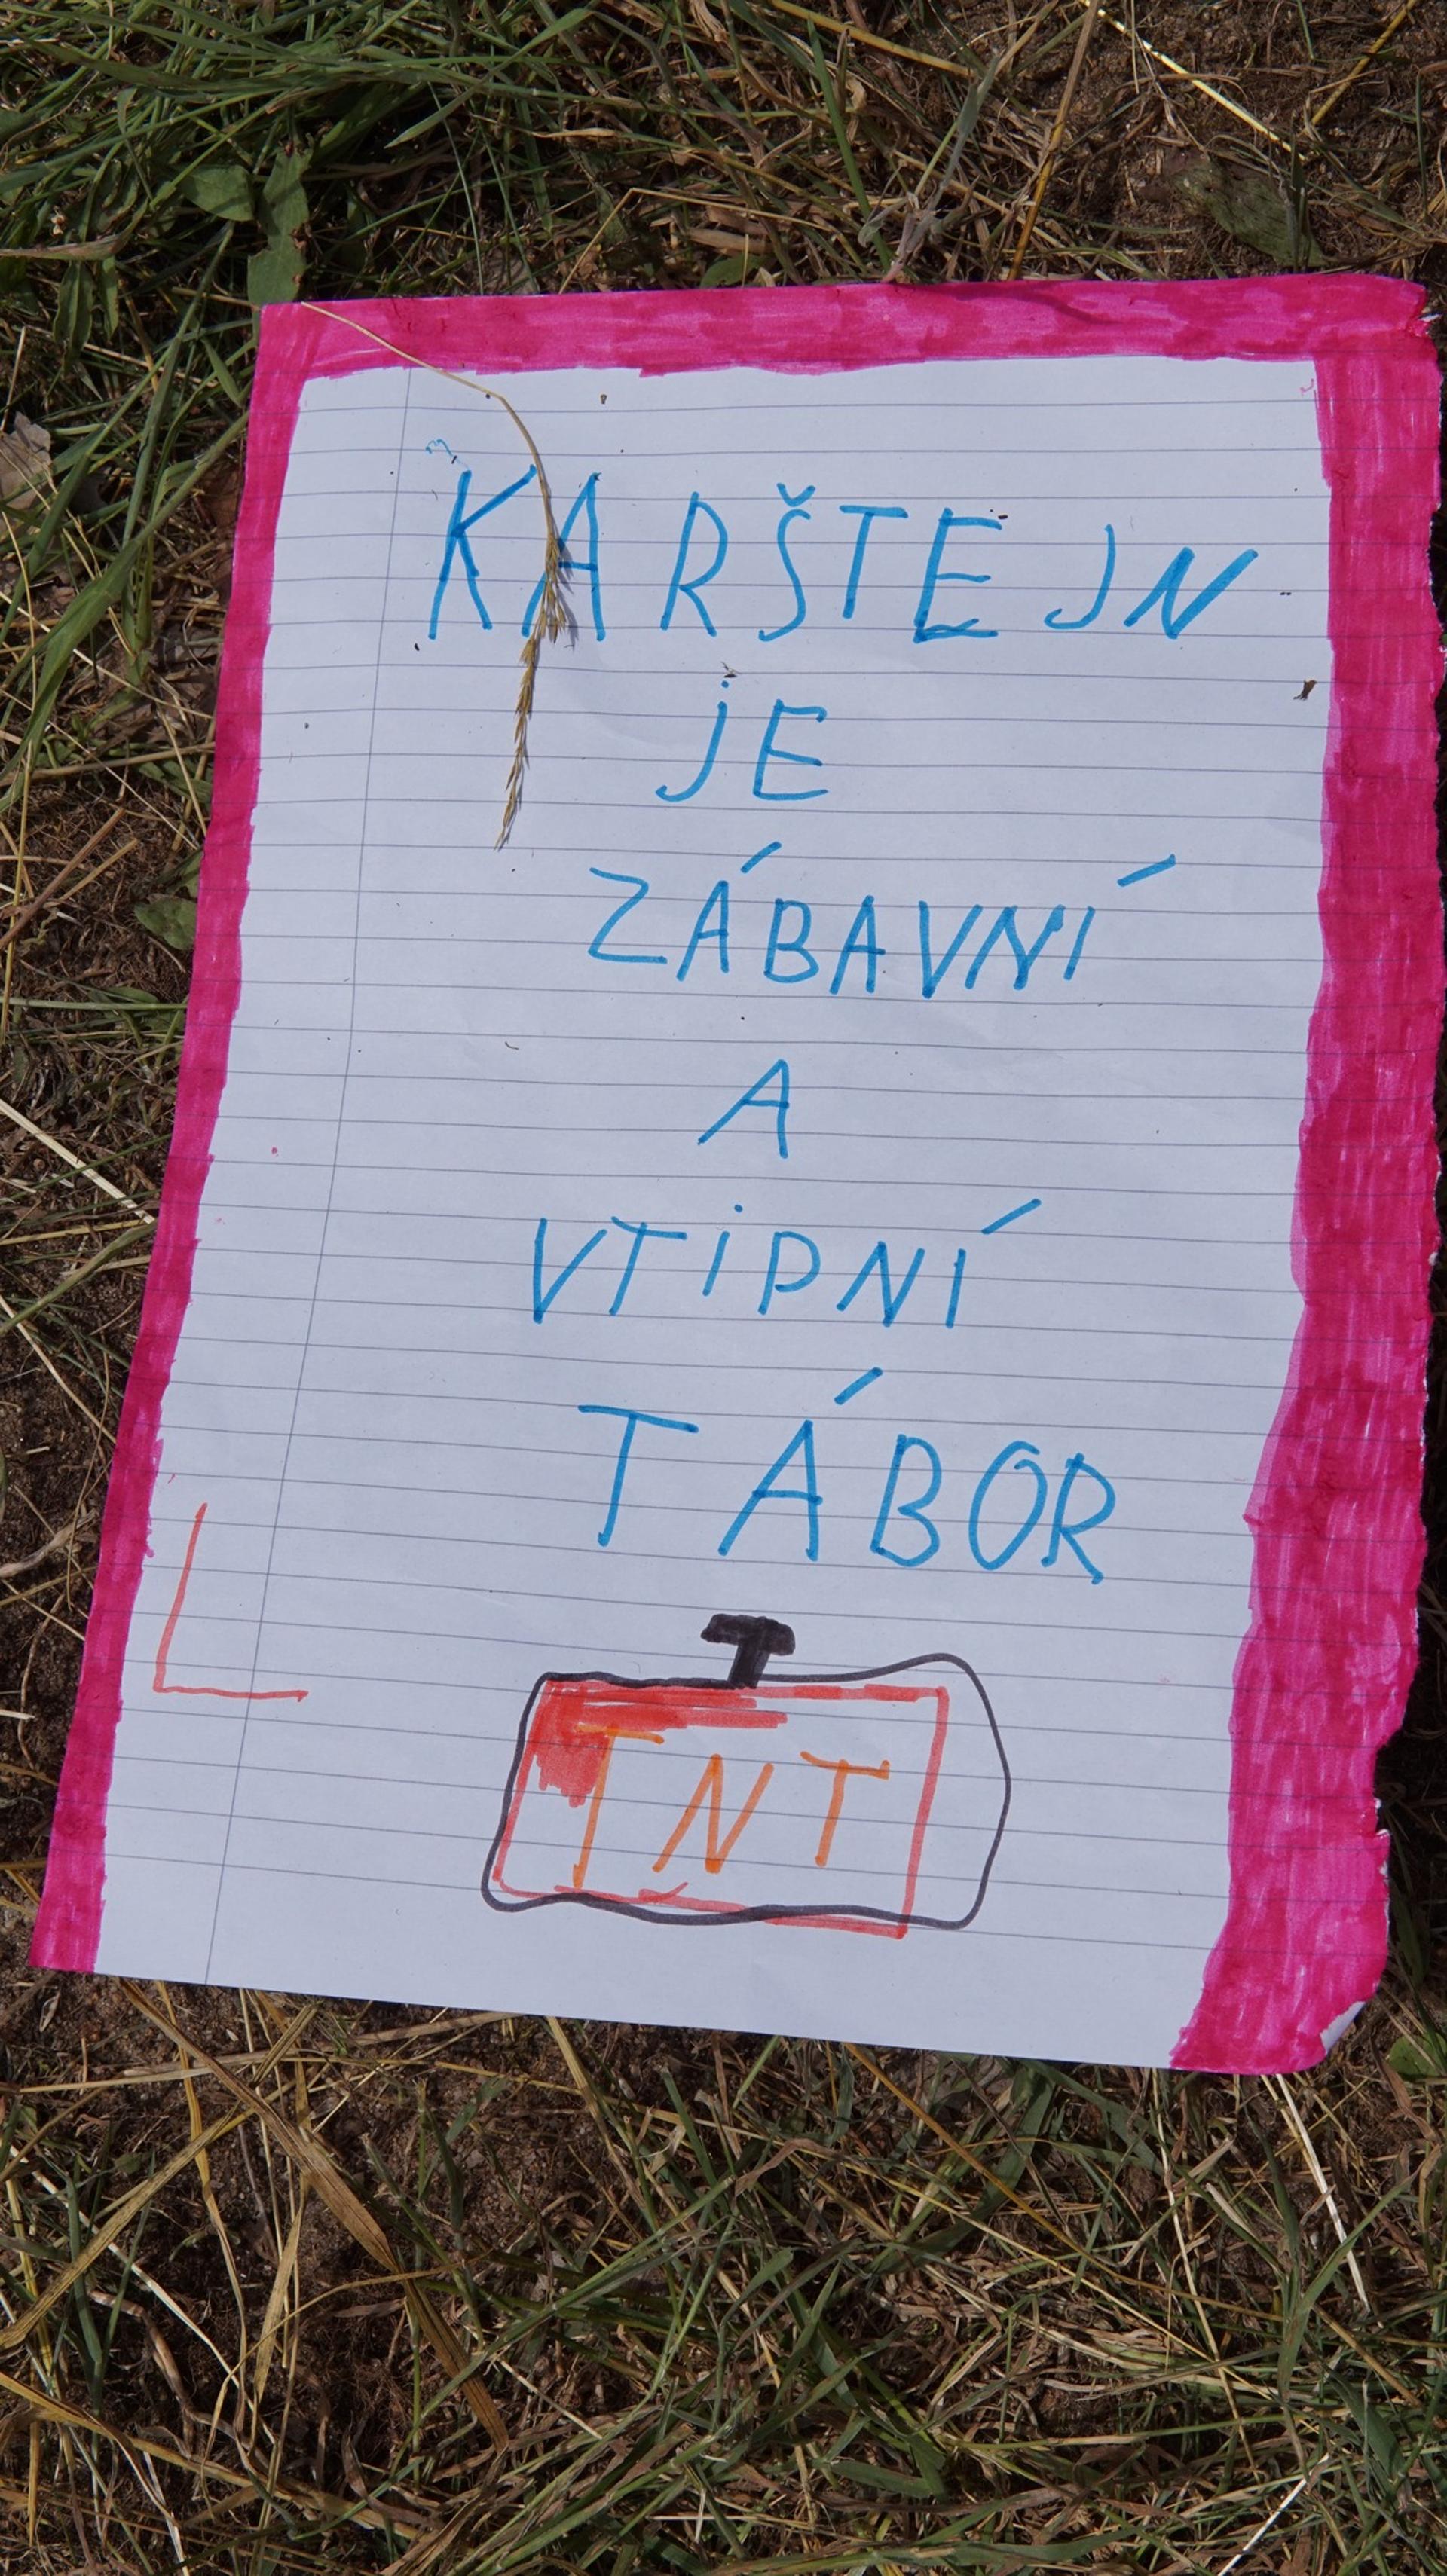 KARŠTEJN
jE
ZÁBAVNÍ
A
VTiPNÍ
TÁBOR
TNT